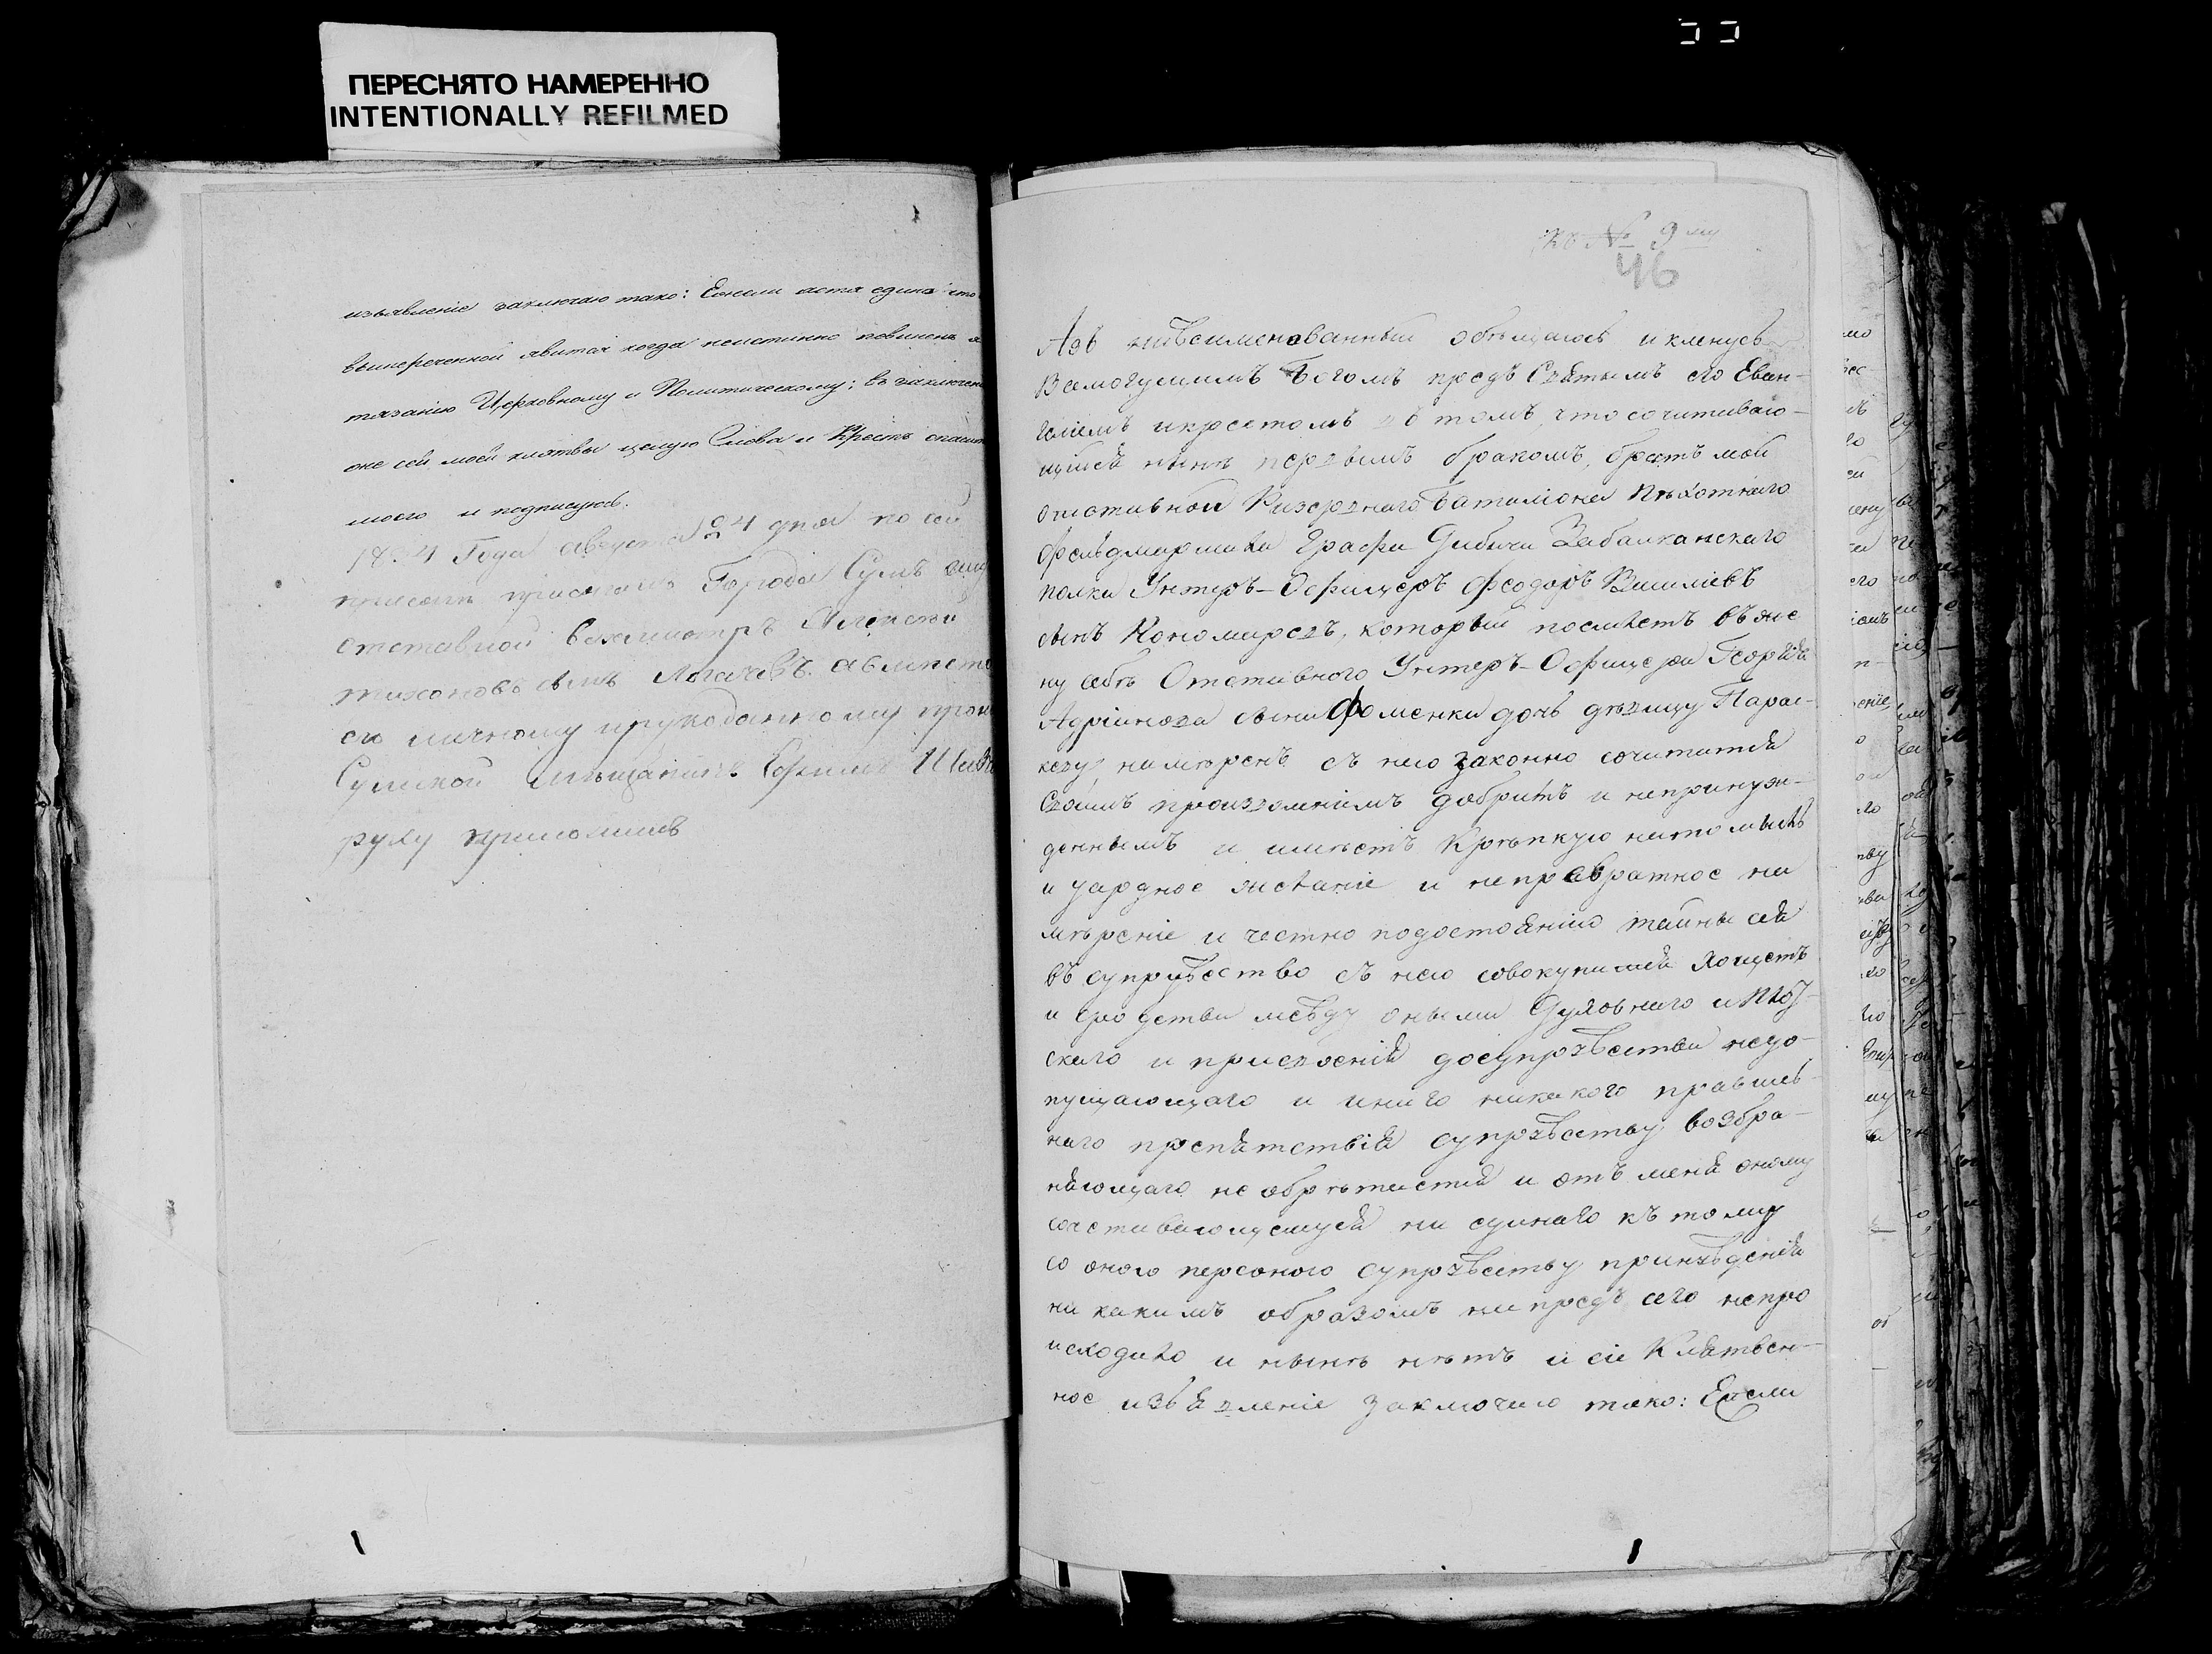 ПЕРЕСНЯТО НАМЕРЕННО
INTENTIONALLY REFILMED
изъявленіе заключаю тако: Ежели хотя едино что
вышереченной явится когда неистинно повиненъ я
тязанію Церковному и Политическому; въ заключен
же сей моей клятвы цѣлую Слова и Крестъ спасит
моего и подписуюсь.
Года августа 24 дня по сей
присяги Города Сумъ
отставной вахмистръ
тихоновъ сынъ
его личному и рукоданному прош
Сумской мѣщанинъ
руку приложилъ
Къ № 9му
46
Азъ нижеименованный обѣщаюсь и кленусь
Всемогущимъ Богомъ предъ Святымъ его Еван-
геліемъ и крестомъ въ томъ, что сочитаваю-
щійся нынѣ первымъ бракомъ, братъ мой
отставной Резервнаго Баталіона Пѣхотнаго
Фельдмаршала Графа Дибича Забалканскаго
полка Унтеръ-Офицеръ Феодоръ Василіевъ
сынъ Кономаревъ, который поемлетъ въ же
ну себѣ Отставного Унтеръ-Офицера Георгія
Адріянова сына Фоменки дочь дѣвицу Парас-
кеву, намѣренъ съ нею законно сочитатся
своимъ произволеніемъ добрымъ и непринуж-
деннымъ и имѣетъ Крѣпкую на то мысль
и усердное желаніе и непревратное на
мѣреніе и честно по достоянію тайны сея
въ супружество съ нею совокупится хощетъ
и сродства между оными Духовнаго и Плот-
скаго и присвоенія до супружества недо-
пущающаго и инаго никакого правиль-
наго препятствія супружеству возбра-
няющаго не обрѣтается и отъ меня оному
сочетавающемуся ни единаго къ тому
со оною персоною супружеству принуждения
ни какимъ образомъ ни предъ сего непро
исходило и нынѣ нѣтъ и сіе Клятвен-
ное изъявленіе заключаю тако: Ежели